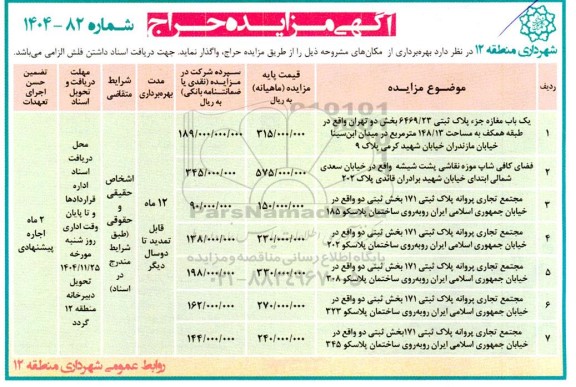 آگهی مزایده حراج
شماره ۸۲ - ۱۴۰۴
شهرداری منطقه ۱۲ در نظر دارد بهره‌برداری از مکان‌های مشروحه ذیل را از طریق مزایده حراج، واگذار نماید. جهت دریافت اسناد داشتن فلش الزامی می‌باشد.
ردیف
موضوع مزایده
قیمت پایه مزایده (ماهیانه) به ریال
سپرده شرکت در مزایده (نقدی یا ضمانتنامه بانکی) به ریال
مدت بهره‌برداری
شرایط متقاضی
مهلت دریافت و تحویل اسناد
تضمین حسن اجرای تعهدات
۱
یک باب مغازه جزء پلاک ثبتی ۶۴۶۹/۲۳ بخش دو تهران واقع در
طبقه همکف به مساحت ۱۴۸/۱۳ مترمربع در میدان ابن‌سینا
خیابان مازندران خیابان شهید کرمی پلاک ۹
۳۱۵/۰۰۰/۰۰۰
۱۸۹/۰۰۰/۰۰۰/۰۰۰
۲
فضای کافی شاپ موزه نقاشی پشت شیشه واقع در خیابان سعدی
شمالی ابتدای خیابان شهید برادران قائدی پلاک ۲۰۲
۵۷۵/۰۰۰/۰۰۰
۳۴۵/۰۰۰/۰۰۰
۳
مجتمع تجاری پروانه پلاک ثبتی ۱۷۱ بخش ثبتی دو واقع در
خیابان جمهوری اسلامی ایران روبه‌روی ساختمان پلاسکو ۱۸۵
۱۵۰/۰۰۰/۰۰۰
۹۰/۰۰۰/۰۰۰
۴
مجتمع تجاری پروانه پلاک ثبتی ۱۷۱ بخش ثبتی دو واقع در
خیابان جمهوری اسلامی ایران روبه‌روی ساختمان پلاسکو ۲۰۲
۲۳۰/۰۰۰/۰۰۰
۱۳۸/۰۰۰/۰۰۰
۵
مجتمع تجاری پروانه پلاک ثبتی ۱۷۱ بخش ثبتی دو واقع در
خیابان جمهوری اسلامی ایران روبه‌روی ساختمان پلاسکو ۳۰۸
۳۳۰/۰۰۰/۰۰۰
۱۹۸/۰۰۰/۰۰۰
۶
مجتمع تجاری پروانه پلاک ثبتی ۱۷۱ بخش ثبتی دو واقع در
خیابان جمهوری اسلامی ایران روبه‌روی ساختمان پلاسکو ۳۲۳
۲۷۰/۰۰۰/۰۰۰
۱۶۲/۰۰۰/۰۰۰
۷
مجتمع تجاری پروانه پلاک ثبتی ۱۷۱ بخش ثبتی دو واقع در
خیابان جمهوری اسلامی ایران روبه‌روی ساختمان پلاسکو ۳۴۵
۲۴۰/۰۰۰/۰۰۰
۱۴۴/۰۰۰/۰۰۰
۱۲ ماه
قابل
تمدید تا
دوسال
دیگر
اشخاص
حقیقی
و
حقوقی
(طبق
شرایط
مندرج
در
اسناد)
محل
دریافت
اسناد
اداره
قراردادها
و تا پایان
وقت اداری
روز شنبه
مورخه
۱۴۰۴/۱۱/۲۵
تحویل
دبیرخانه
منطقه ۱۲
گردد
۲ ماه
اجاره
پیشنهادی
روابط عمومی شهرداری منطقه ۱۲
ParsNamad
پایگاه اطلاع رسانی مناقصه و مزایده